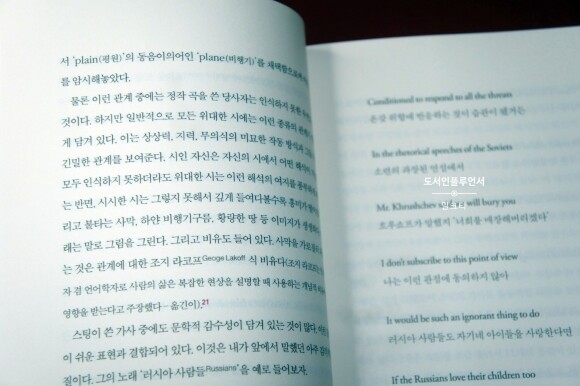 서 'plain(평원)'의 동음이의어인 'plane(비행기)'를 채택함으로써
를 암시해놓았다.
물론 이런 관계 중에는 정작 곡을 쓴 당사자는 인식하지 못한
것이다. 하지만 일반적으로 모든 위대한 시에는 이런 종류의
게 담겨 있다. 이는 상상력, 지력, 무의식의 미묘한 작동 방식과
긴밀한 관계를 보여준다. 시인 자신은 자신의 시에서 어떤
모두 인식하지 못하더라도 위대한 시는 이런 해석의 여지를
는 반면, 시시한 시는 그렇지 못해서 깊게 들여다볼수록 흥미가
리고 불타는 사막, 하얀 비행기구름, 황량한 땅 등 이미지가
래는 말로 그림을 그린다. 그리고 비유도 들어 있다. 사막을
는 것은 관계에 대한 조지 라코프George Lakoff 식 비유다(조지
자 겸 언어학자로 사람의 삶은 복잡한 현상을 설명할 때 사용하는 개념적
영향을 받는다고 주장했다―옮긴이).21
스팅이 쓴 가사 중에도 문학적 감수성이 담겨 있는 것이 많다.
이 쉬운 표현과 결합되어 있다. 이것은 내가 앞에서 말했던 아주
질이다. 그의 노래 '러시아 사람들Russians'을 예로 들어보자.
Conditioned to respond to all the threats
온갖 위협에 반응하는 것이 습관이
In the rhetorical speeches of the Soviets
소련의 과장된 연설에서
도서인플루언서
Mr. Khrushchev will bury you
흐루쇼프가 말했지 "너희를 매장해버리겠다"
I don't subscribe to this point of view
나는 이런 관점에 동의하지 않아
It would be such an ignorant thing to do
러시아 사람들도 자기네 아이들을 사랑한다면
If the Russians love their children too